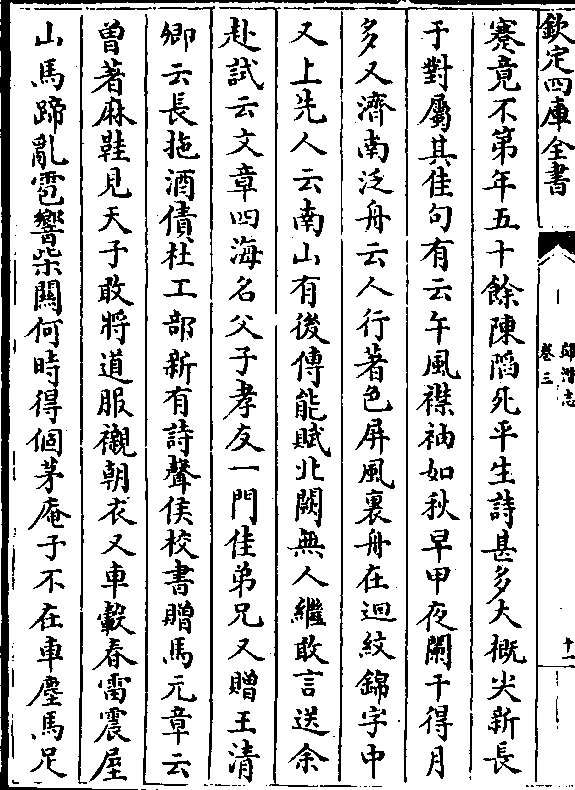 欽定四庫全書
歸潛志
卷三
十一
蹇竟不第年五十餘陳陷死平生詩甚多大概尖新長
于對屬其佳句有云午風襟袖如秋早甲夜闌干得月
多又濟南泛舟云人行著色屏風裏舟在迴紋錦字中
又上先人云南山有後傳能賦北闕無人繼敢言送余
赴試云文章四海名父子孝友一門佳弟兄又贈王清
卿云長拖酒債杜工部新有詩聲侯校書贈馬元章云
曽著麻鞋見天子敢將道服襯朝衣又車轂春雷震屋
山馬蹄亂雹響柴關何時得個茅庵子不在車塵馬足